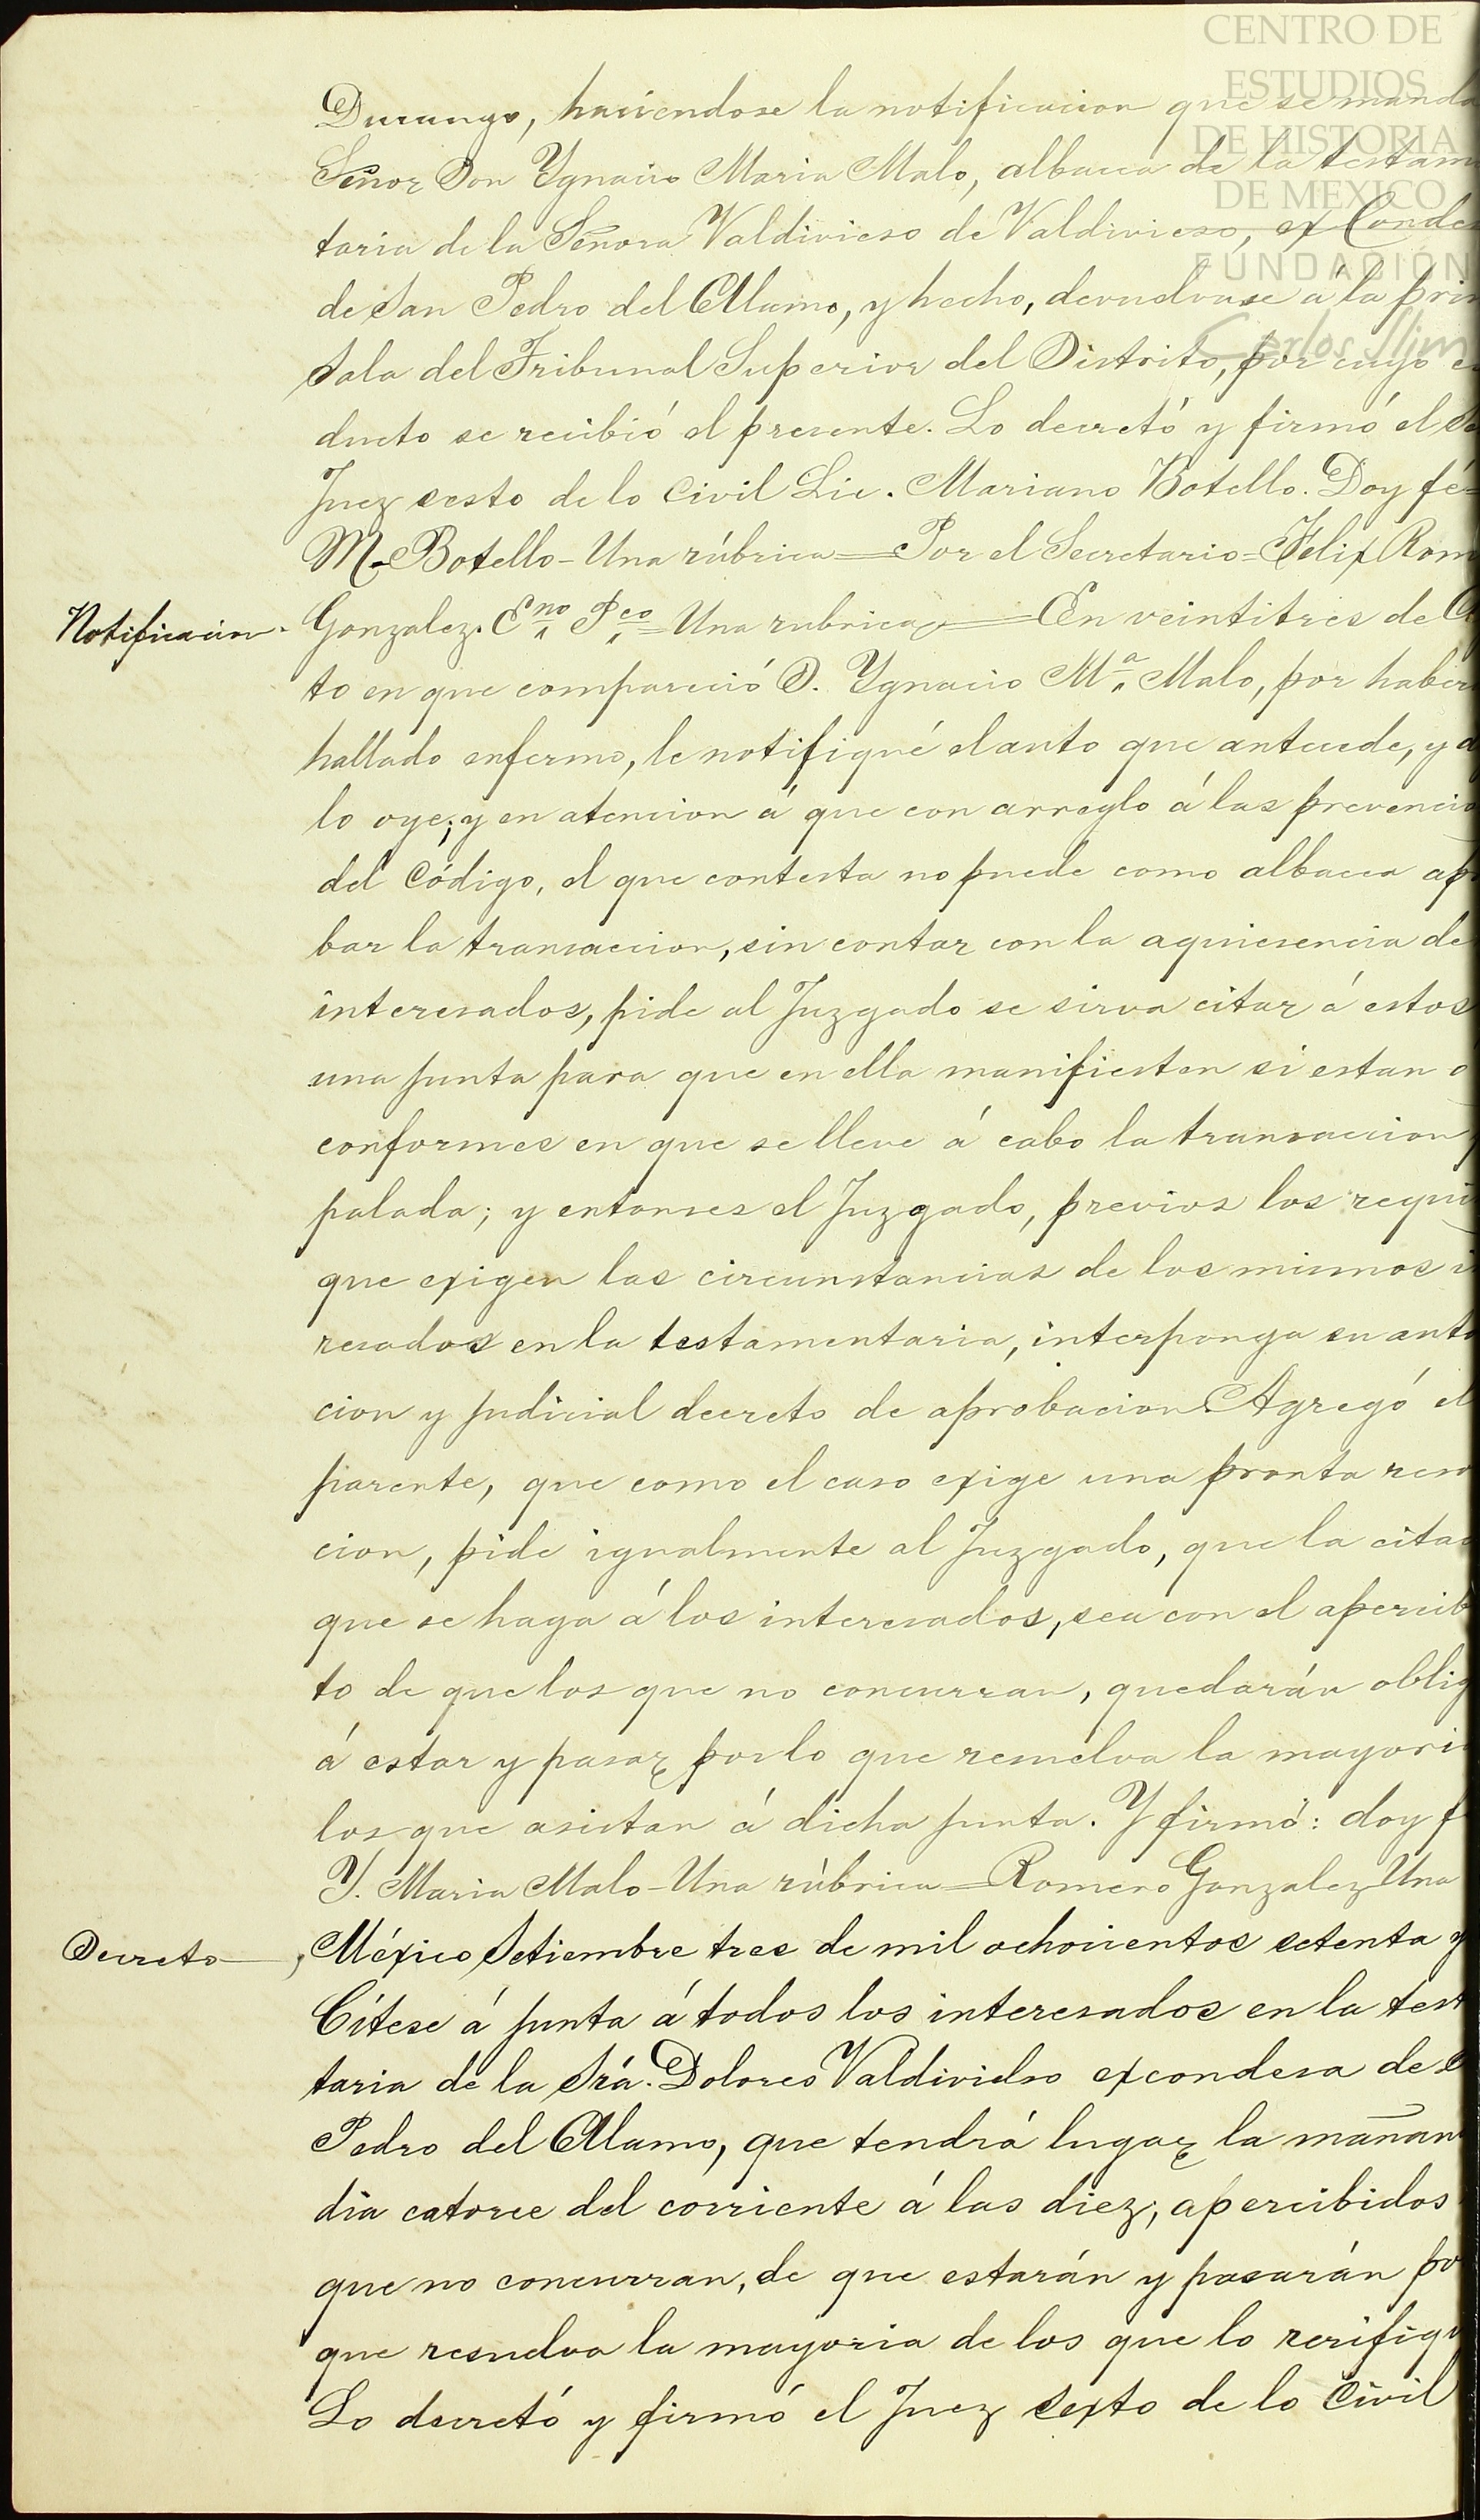 CENTRO DE
ESTUDIOS
DE HISTORIA
DE MEXICO
FUNDACIÓN
Carlos Slim
Durango, haciendose la notificacion que se manda
Señor Don Ygnacio Maria Malo, albacea de la testam
taria de la Señora Valdivieso de Valdivieso, ex Conde
de San Pedro del Alamo, y hecho, devuelvase á la pri
Sala del Tribunal Superior del Distrito, por cuyo
ducto se recibió el presente. Lo decretó y firmó el
Juez sesto de lo Civil Lic. Mariano Botello. Doy fé=
M. Botello - Una rúbrica = Por el Secretario = Felix Rom
Notificacion. Gonzalez. Eno Pco = Una rubrica = En veintitres de
to en que compareció D. Ygnacio Ma Malo, por haber
hallado enfermo, le notifiqué el auto que antecede, y
lo oye; y en atencion á que con arreglo á las prevencio
del Código, el que contesta no puede como albacea ap
bar la transaccion, sin contar con la aquiesencia de
interesados, pide al Juzgado se sirva citar á estos
una junta para que en ella manifiesten si estan ó
conformes en que se lleve á cabo la transaccion
palada; y entonses el Juzgado, previos los requi
que exigen las circunstancias de los mismos
resados en la testamentaria, interponga su auto
cion y judicial decreto de aprobacion. Agregó el
parente, que como el caso exige una pronta reso
cion, pide igualmente al Juzgado, que la citac
que se haga á los interesados, sea con el apercib
to de que los que no concurran, quedarán oblig
á estar y pasar por lo que resuelva la mayori
los que asistan á dicha junta. Y firmó: doy f
Y. Maria Malo - Una rúbrica = Romero Gonzalez Una
Decreto México Setiembre tres de mil ochocientos setenta y
Cítese á junta á todos los interesados en la test
taria de la Srá. Dolores Valdivielso excondesa de
Pedro del Alamo, que tendrá lugar la mañan
dia catorce del corriente á las diez; apercibidos
que no concurran, de que estarán y pasarán po
que resuelva la mayoria de los que lo verifiqu
Lo decretó y firmó el Juez sexto de lo Civil